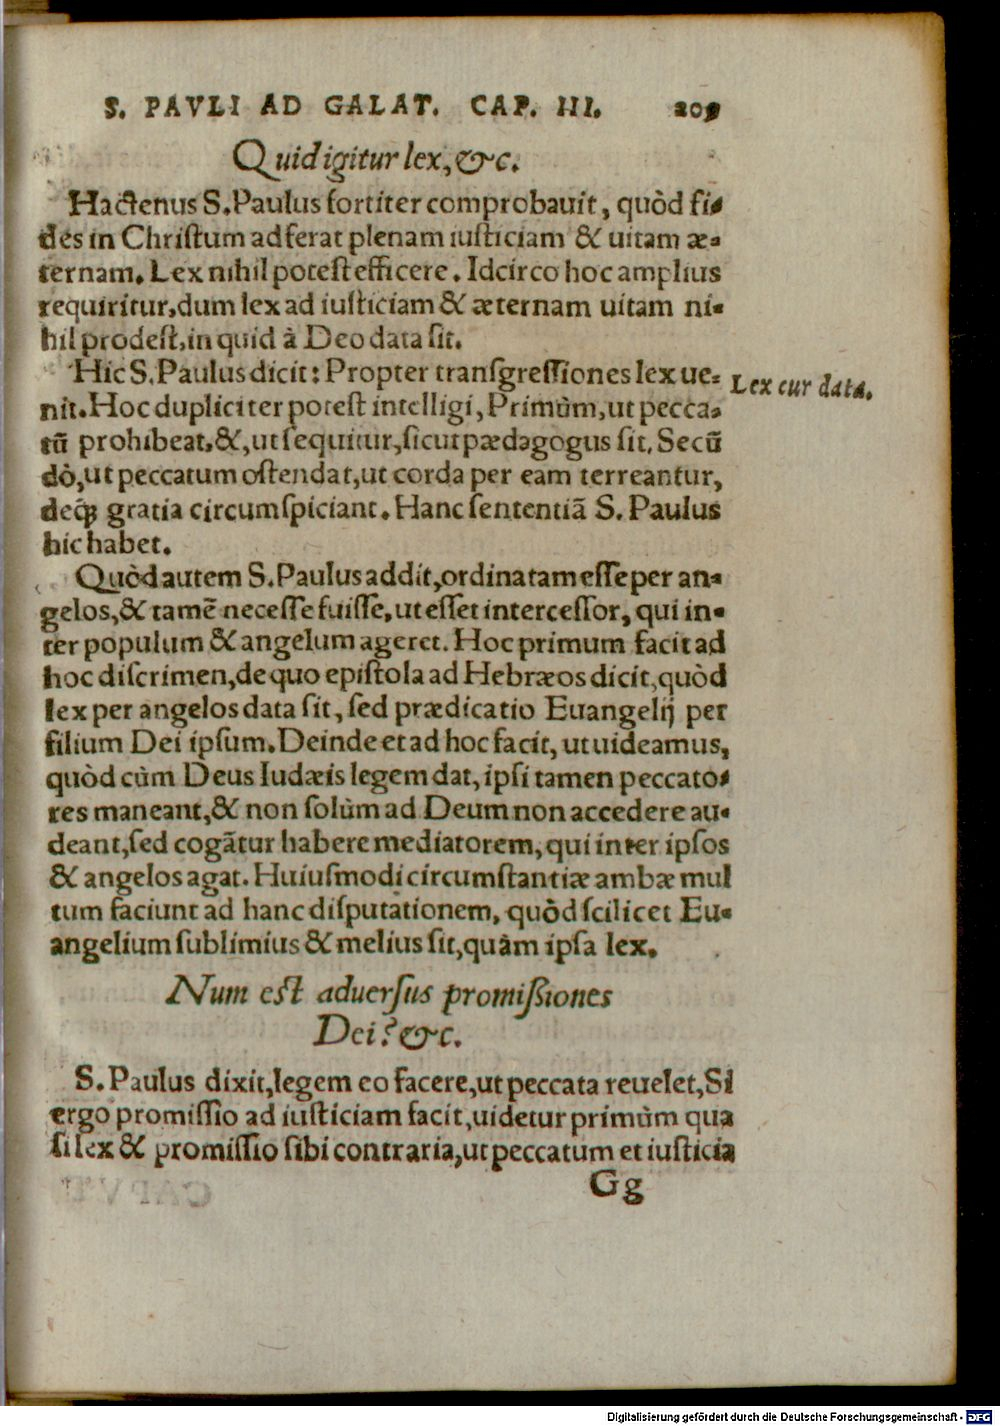 S. PAVLI AD GALAT. CAP. III. 209
Quid igitur lex, &c.
Hactenus S. Paulus fortiter comprobauit, quòd fi-
des in Christum adferat plenam iusticiam & uitam æ-
ternam. Lex nihil potest efficere. Idcirco hoc amplius
requiritur, dum lex ad iusticiam & æternam uitam ni-
hil prodest, in quid à Deo data sit.
Hic S. Paulus dicit: Propter transgressiones lex ue-
nit. Hoc dupliciter potest intelligi, Primùm, ut pecca-
tū prohibeat, &, ut sequitur, sicut pædagogus sit. Secū
dò, ut peccatum ostendat, ut corda per eam terreantur,
deq́; gratia circumspiciant. Hanc sententiā S. Paulus
hic habet.
Quòd autem S. Paulus addit, ordinatam esse per an-
gelos, & tamē necesse fuisse, ut esset intercessor, qui in-
ter populum & angelum ageret. Hoc primum facit ad
hoc discrimen, de quo epistola ad Hebræos dicit, quòd
lex per angelos data sit, sed prædicatio Euangelij per
filium Dei ipsum. Deinde et ad hoc facit, ut uideamus,
quòd cùm Deus Iudæis legem dat, ipsi tamen peccato-
res maneant, & non solùm ad Deum non accedere au-
deant, sed cogātur habere mediatorem, qui inter ipsos
& angelos agat. Huiusmodi circumstantiæ ambæ mul
tum faciunt ad hanc disputationem, quòd scilicet Eu-
angelium sublimius & melius sit, quàm ipsa lex.
Num est aduersus promissiones
Dei? &c.
S. Paulus dixit, legem eo facere, ut peccata reuelet, Si
ergo promissio ad iusticiam facit, uidetur primùm qua
si lex & promissio sibi contraria, ut peccatum et iusticia
Gg
Lex cur data.
Digitalisierung gefördert durch die Deutsche Forschungsgemeinschaft - DFG